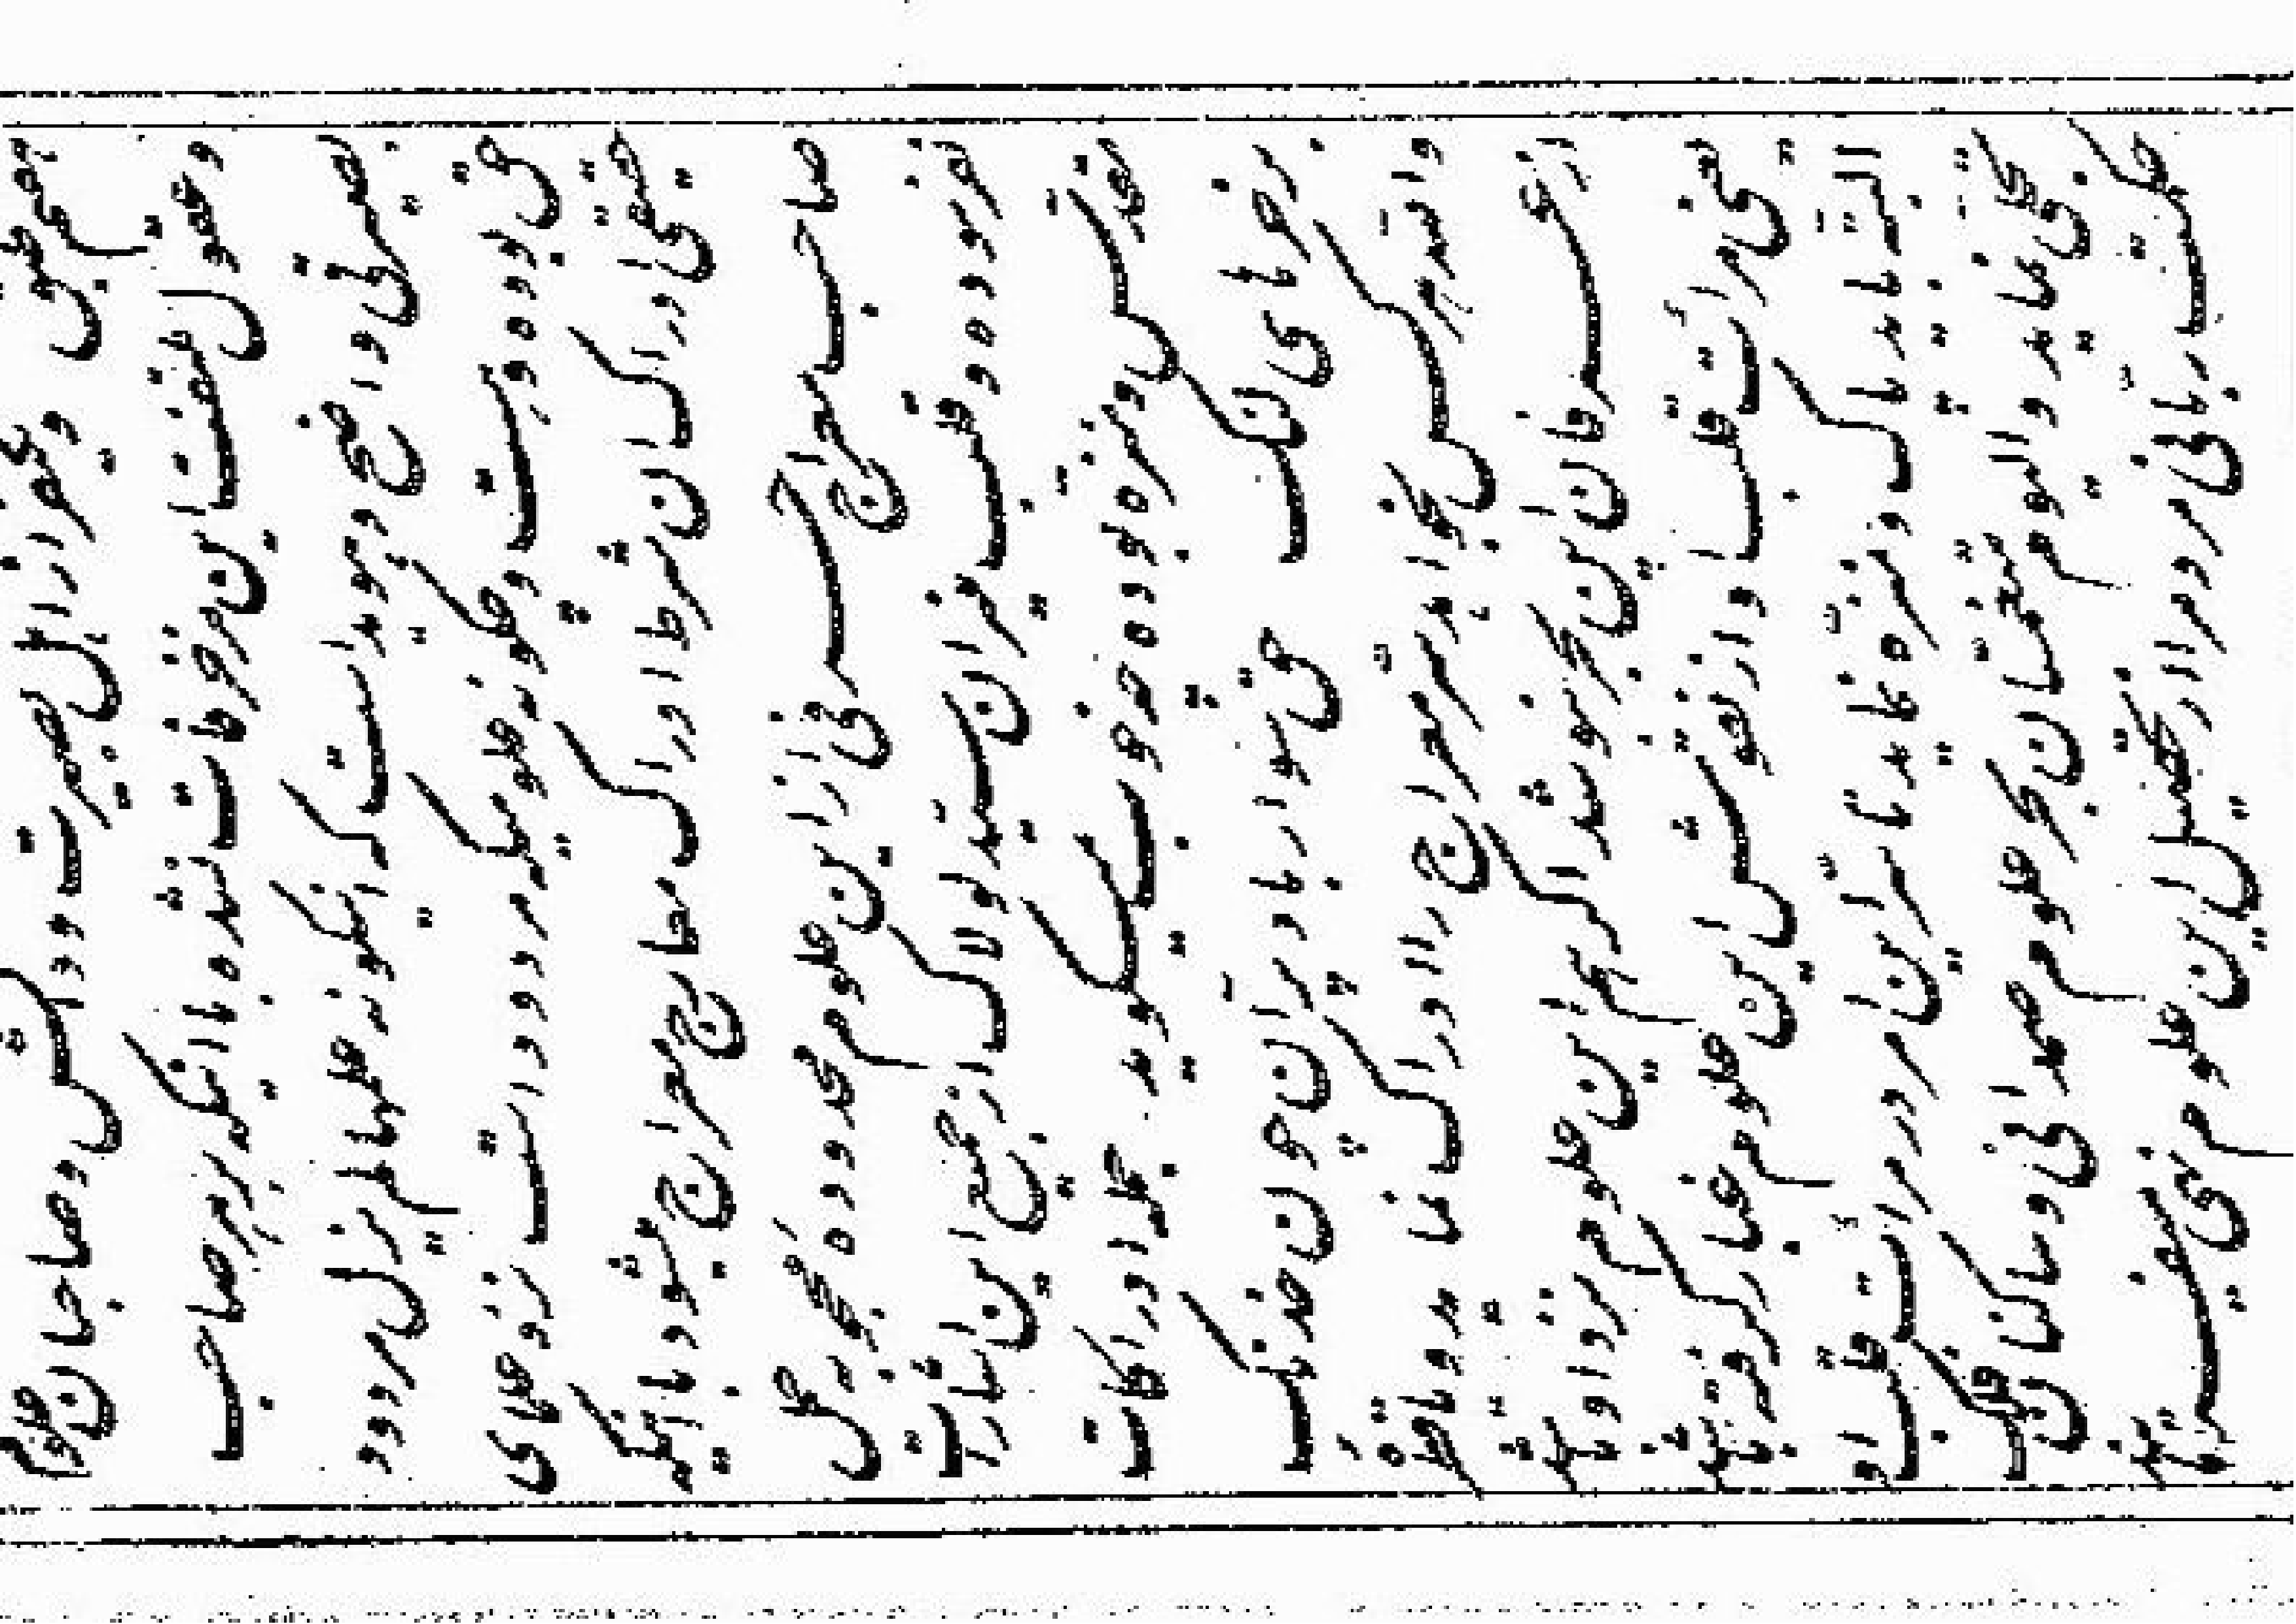 هفتم طبق و یکنفر از اهل بصیرت و دانش و صاحبان علوم
و عقول ملتفت این مزخرفات نشده با اینکه بر هر صاحب
بصیرتی واضح و هویدا است که اینگونه علمها لم یزل مردود
حق بوده و هست و چگونه علومیکه مردود است نزد علمای
حقیقی ادراک آن شرط ادراک معارج معراج میشود با اینکه
صاحب معراج حرفی از این علوم محدوده محجوبه
نفرموده و قلب منیر آن سید لولاک از جمیع این اشارات
مقدس و منزه بوده چه خوب میگوید جمله ادراکات
بر خرهای لنگ حق سوار باد پران چون خدنگ
والله هر کس بخواهد سر معراج را ادراک نماید و یا قطره
از عرفان این بحر بنوشد اگر هم این علوم نزد او باشد
یعنی مرآت قلب او از نقوش این علوم غبار گرفته باشد
البته باید پاک و منزه نماید تا سر این امر در مرآت قلب او
تجلی نماید و الیوم متغمسان بحر علوم صمدانی و ساکنان فلک
حکمت ربانی مردم را از تحصیل این علوم نهی میفرمایند